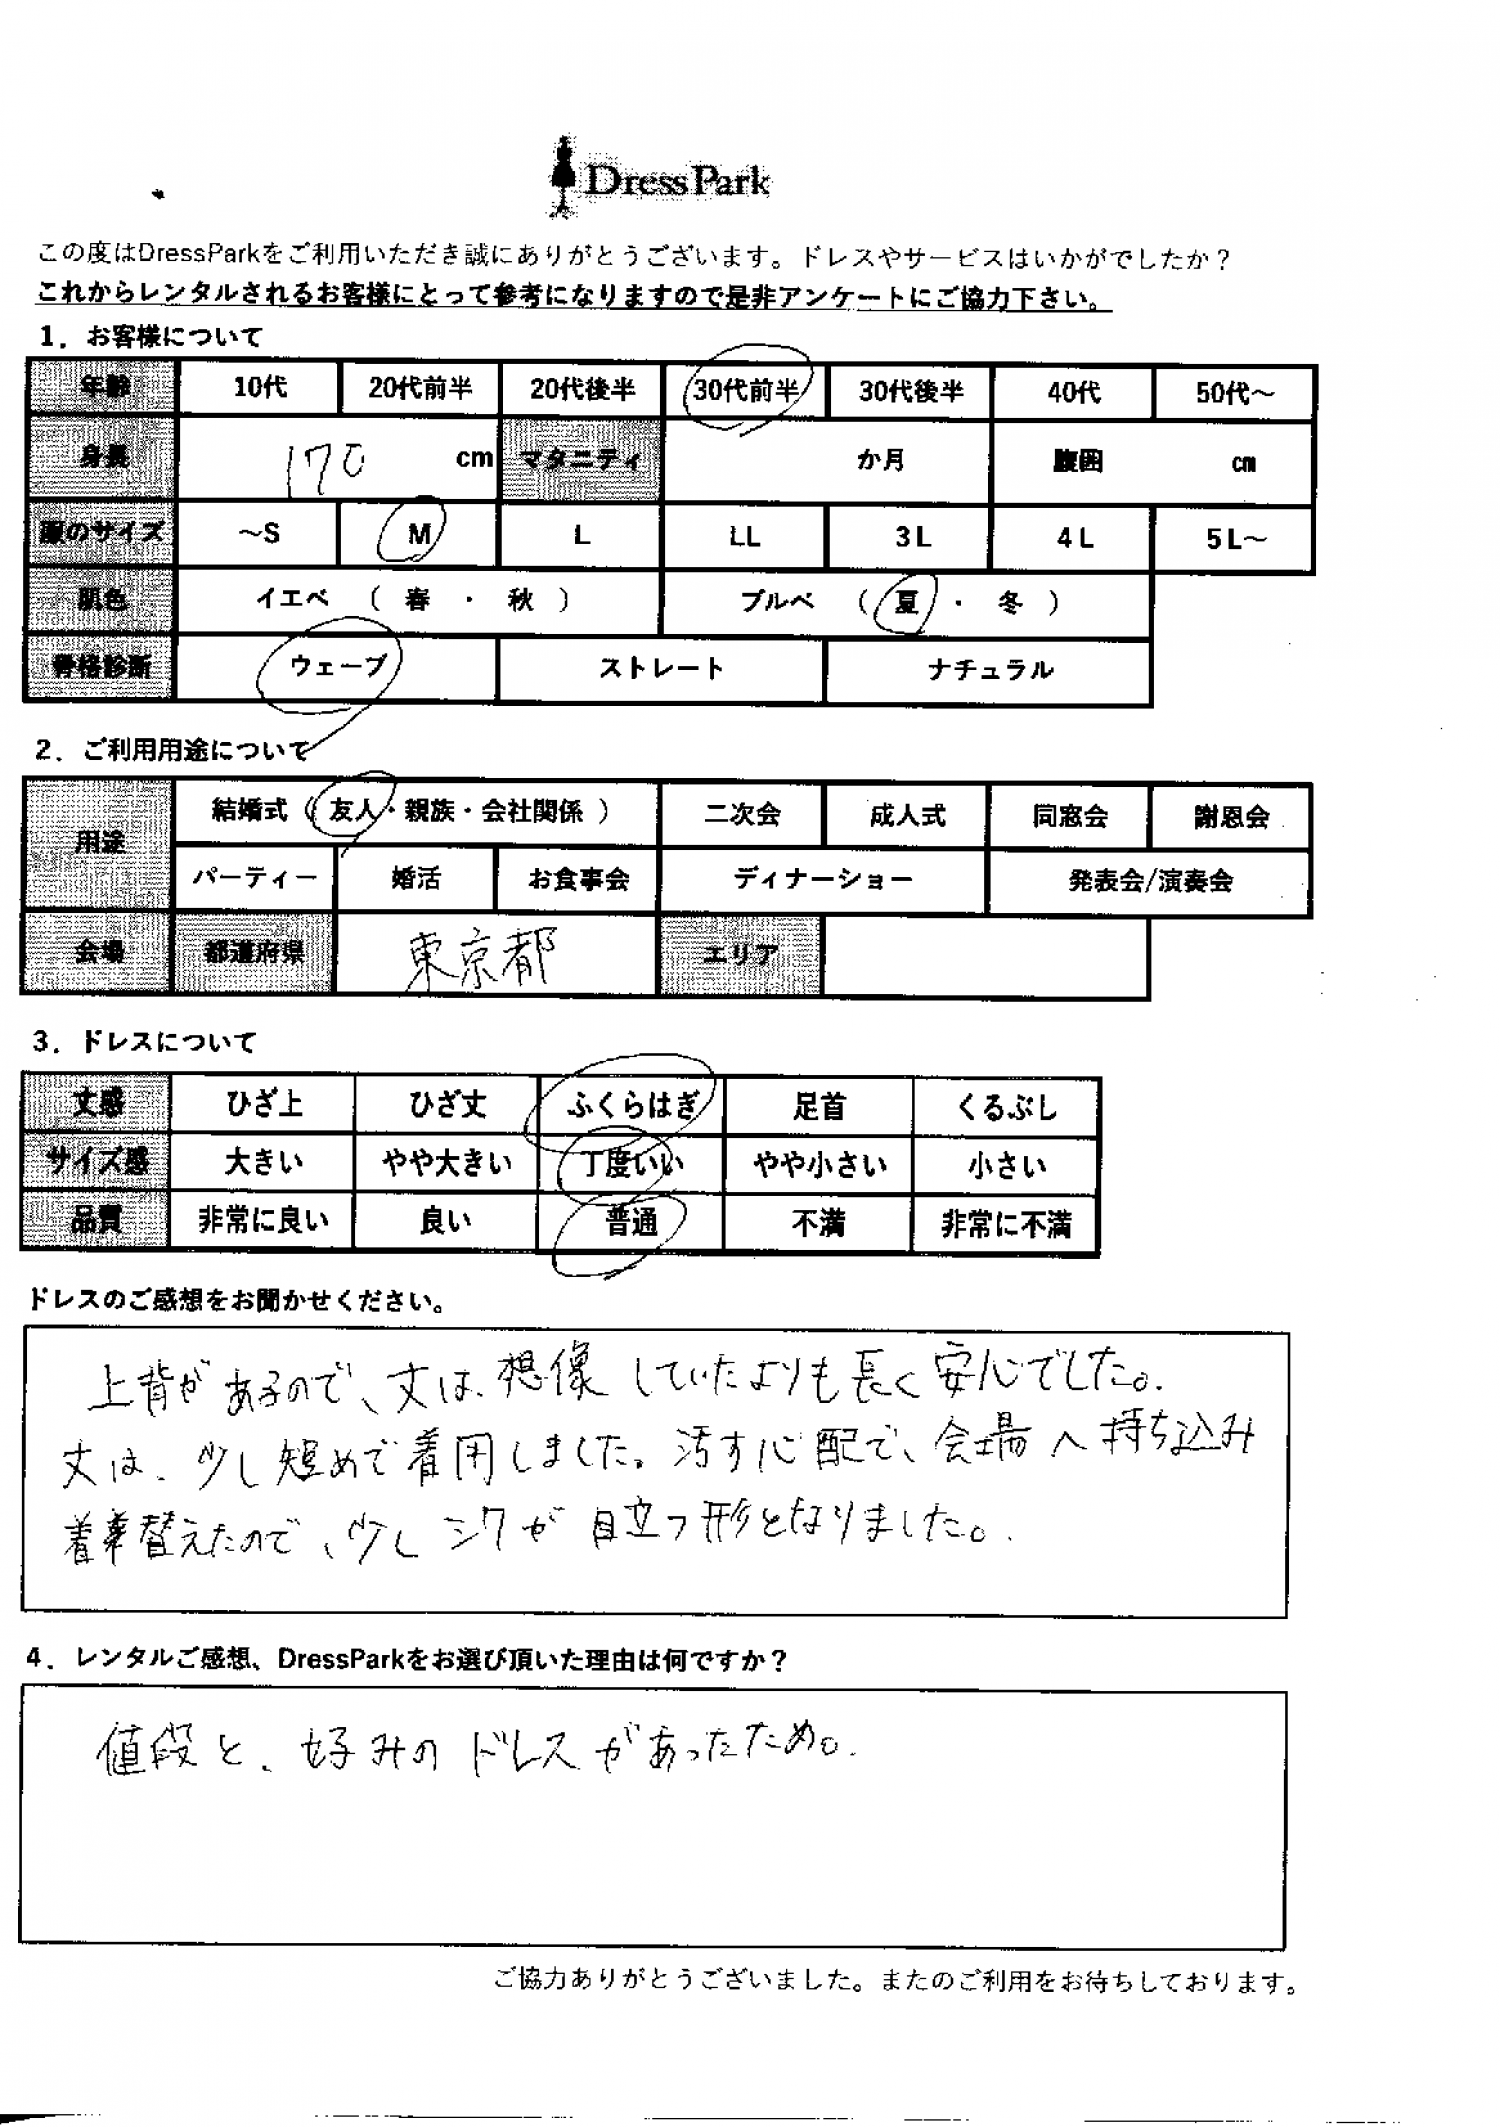 DressPark
この度はDressParkをご利用いただき誠にありがとうございます。ドレスやサービスはいかがでしたか？
これからレンタルされるお客様にとって参考になりますので是非アンケートにご協力下さい。
1．お客様について
年齢 10代 20代前半 20代後半 30代前半 30代後半 40代 50代～
身長 170 cm マタニティ か月 腹囲 cm
服のサイズ ～S M L LL 3L 4L 5L～
肌色 イエベ （ 春 ・ 秋 ） ブルベ （ 夏 ・ 冬 ）
骨格診断 ウェーブ ストレート ナチュラル
2．ご利用用途について
用途 結婚式（ 友人・親族・会社関係 ） 二次会 成人式 同窓会 謝恩会
パーティー 婚活 お食事会 ディナーショー 発表会/演奏会
会場 都道府県 東京都 エリア
3．ドレスについて
丈感 ひざ上 ひざ丈 ふくらはぎ 足首 くるぶし
サイズ感 大きい やや大きい 丁度いい やや小さい 小さい
品質 非常に良い 良い 普通 不満 非常に不満
ドレスのご感想をお聞かせください。
上背があるので、丈は、想像していたよりも長く安心でした。
丈は、少し短めで着用しました。汚す心配で、会場へ持ち込み
着替えたので、少しシワが目立つ形となりました。
4．レンタルご感想、DressParkをお選び頂いた理由は何ですか？
値段と、好みのドレスがあったため。
ご協力ありがとうございました。またのご利用をお待ちしております。